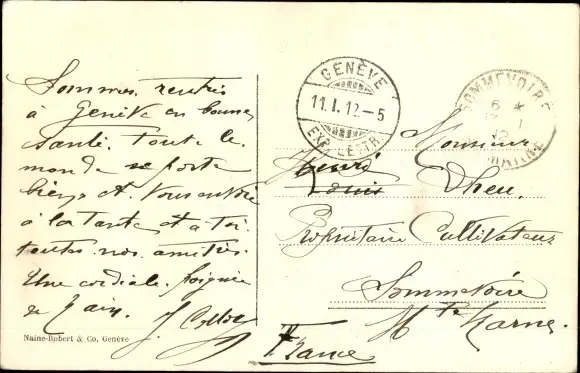 Sommes rentrés
à Genève en bonne
santé. Toute le
monde se porte
bien et vous envoie
à la tante et à toi
toutes nos amitiés.
Une cordiale poignée
de main.
Naine-Robert & Co, Genève
GENÈVE
11.I.12-5
EXP. LETTR.
SOMMEVOIRE
6 *
12 - 1
12
Hte MARNE
Monsieur
Henri
Louis Dheu.
Propriétaire Cultivateur
Sommevoire
Hte Marne.
France